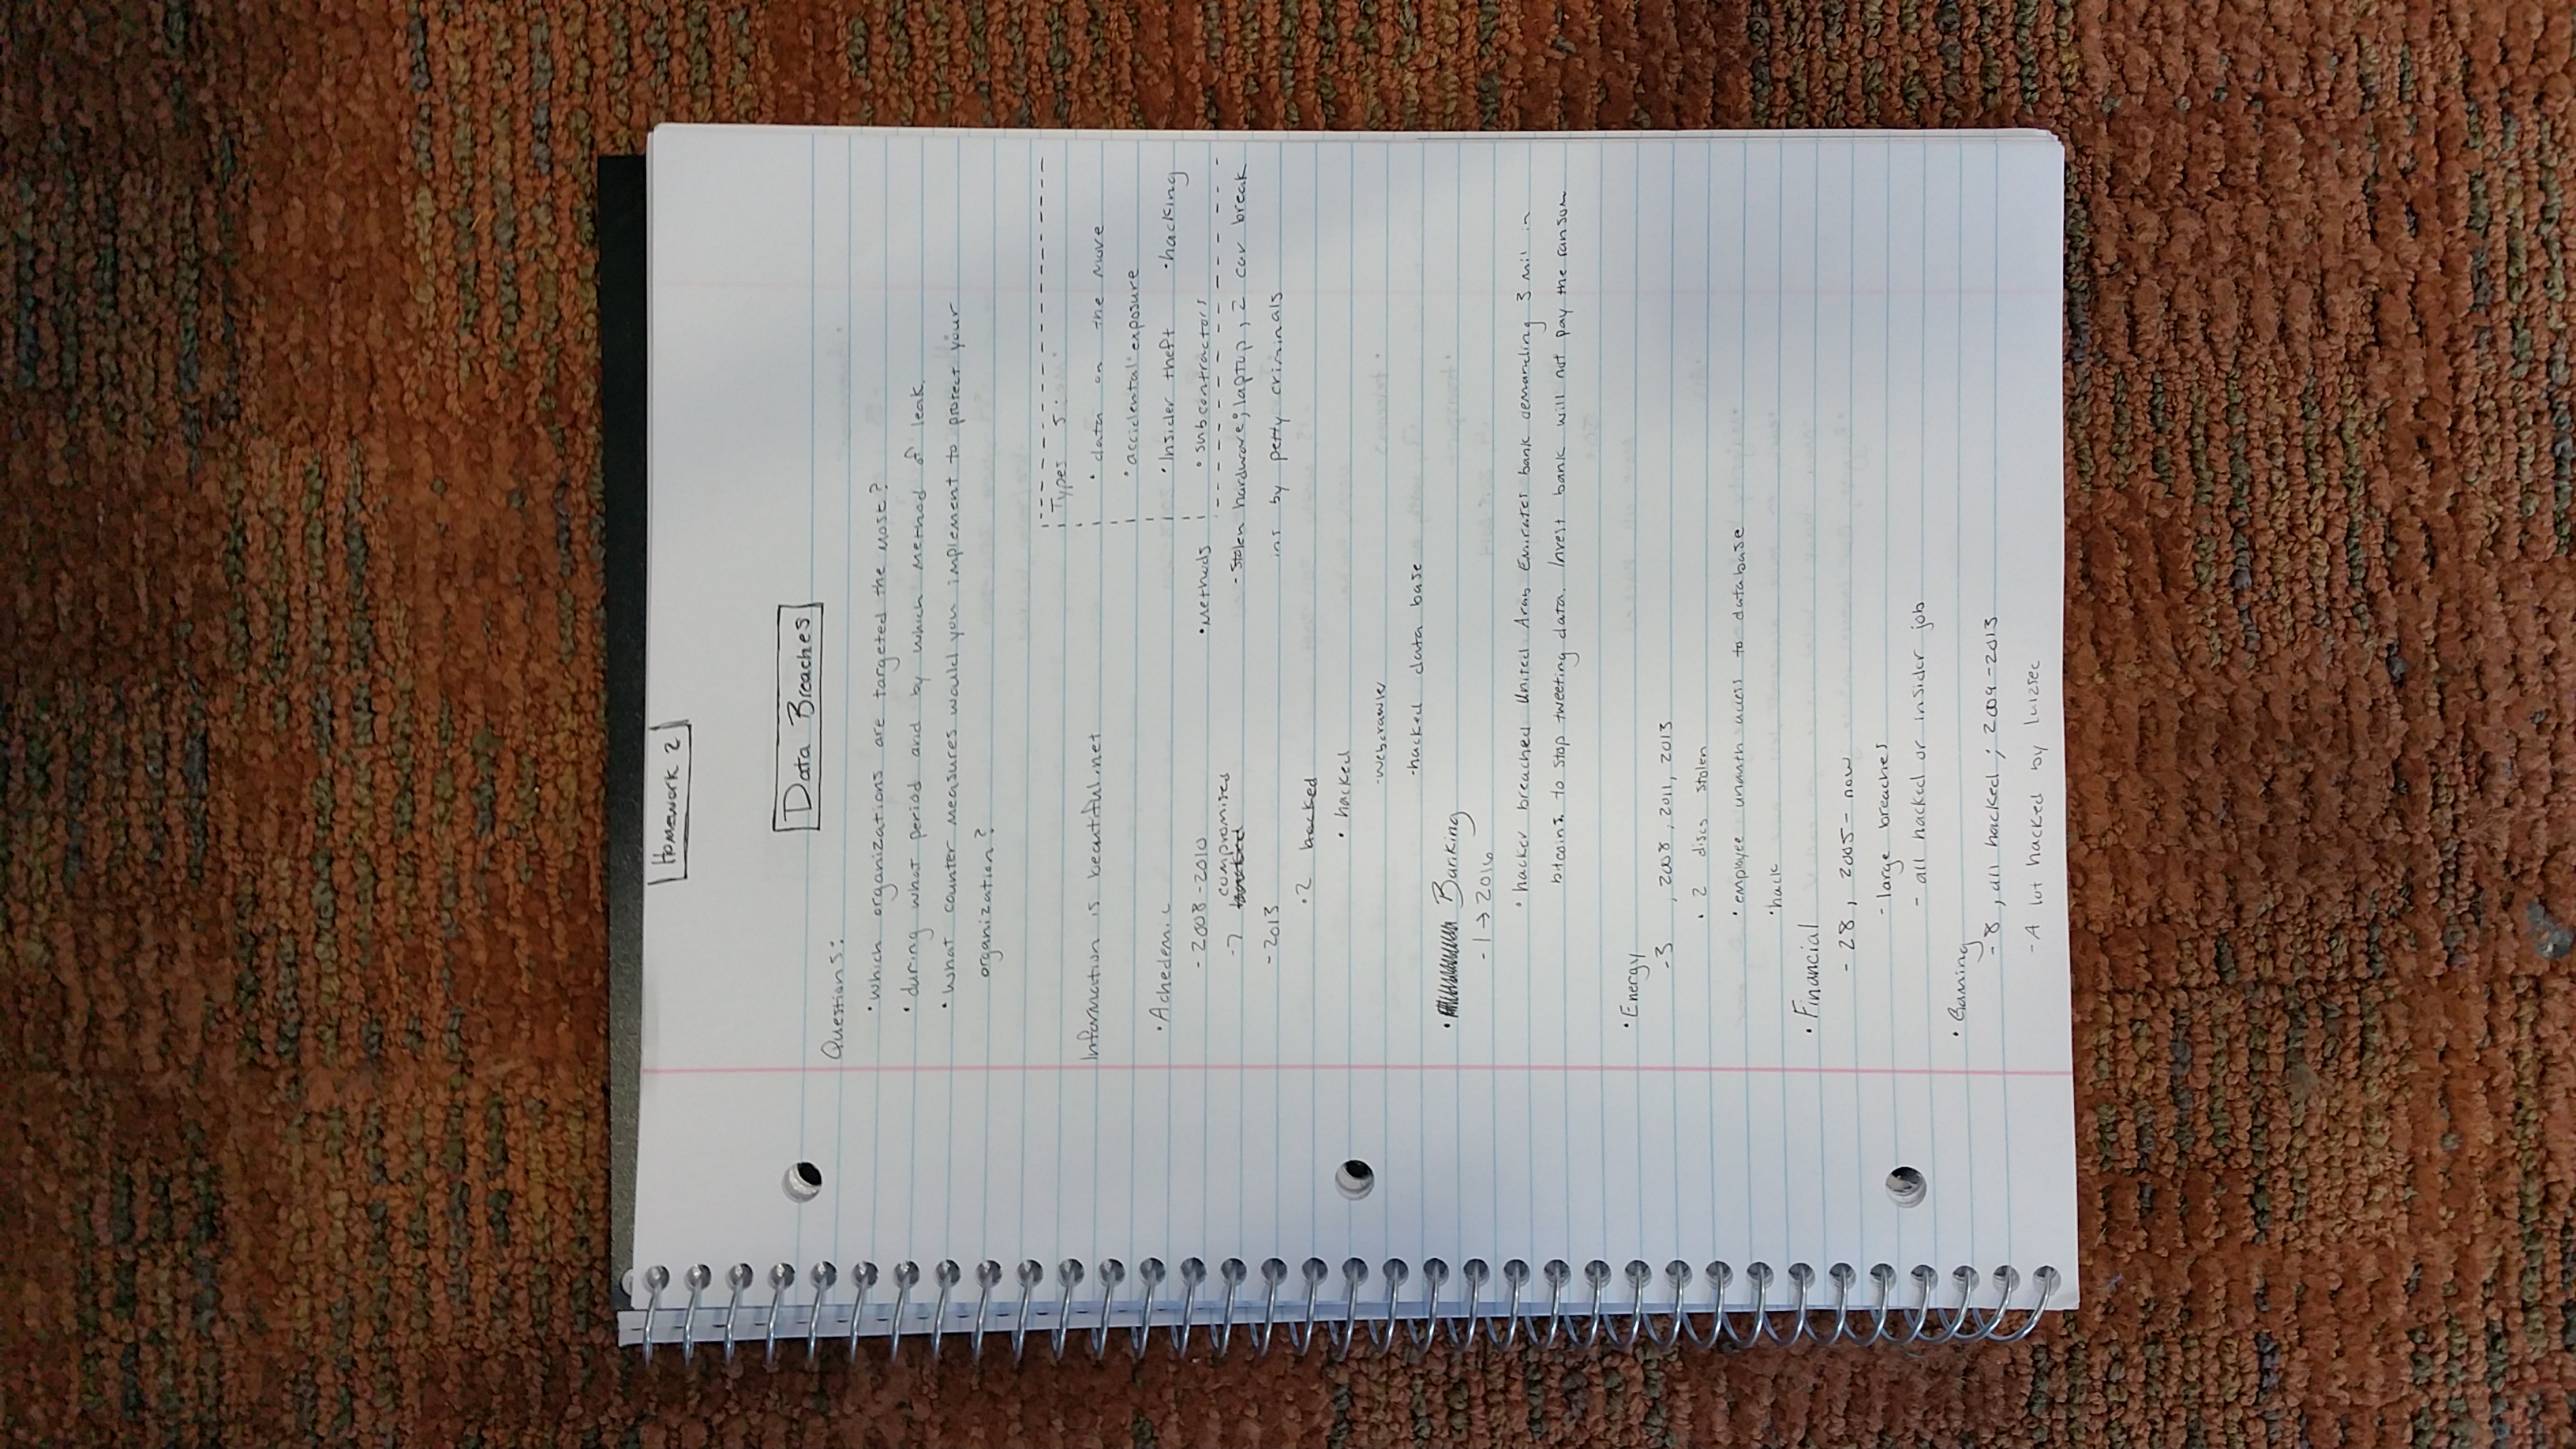 Homework 2
Data Breaches
Questions:
• which organizations are targeted the most?
• during what period and by which method of leak.
• what counter measures would you implement to protect your
organization?
Types 5:
• data on the move
• accidental exposure
• Insider theft • hacking
• subcontractors
Information is beautiful.net
• Achedemic
- 2008-2010
- 7 compromises
- 2013
• 2 hacked
• hacked
- webcrawler
- hacked data base
• Methods
- stolen hardware; laptop, 2 car break
ins by petty criminals
• Banking
- 1 → 2016
• hacker breached United Arab Emirates bank demanding 3 mil in
bitcoins. to stop tweeting data. Invest bank will not pay the ransom
• Energy
- 3 , 2008, 2011, 2013
• 2 discs stolen
• employee unauth access to database
• hack
• Financial
- 28, 2005 - now
- large breaches
- all hacked or insider job
• Gaming
- 8, all hacked;
- A lot hacked by lulzsec